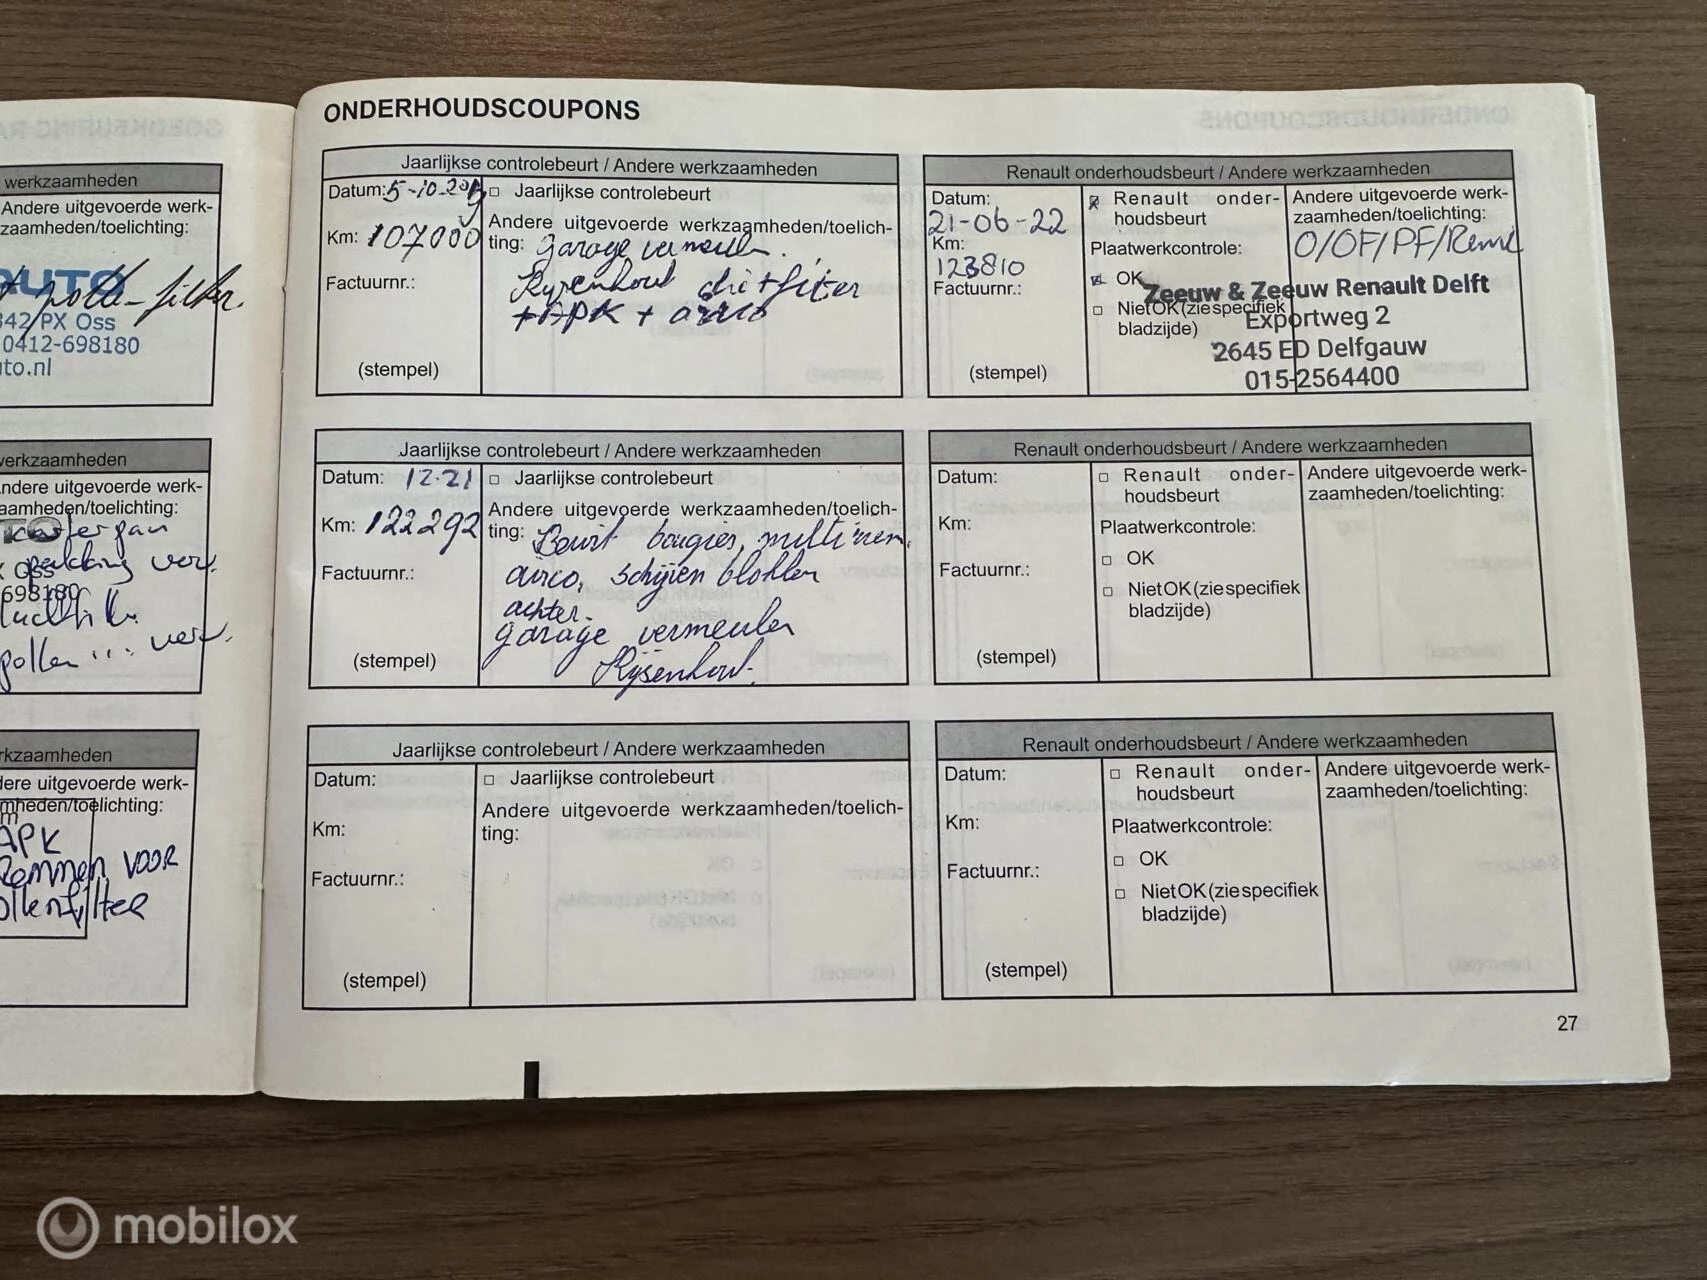 werkzaamheden
Andere uitgevoerde werk-
zaamheden/toelichting:
AUTO
polle-filter.
342 PX Oss
0412-698180
to.nl
werkzaamheden
Andere uitgevoerde werk-
zaamheden/toelichting:
carterpan
pakking verv.
Oss
698180
pollen ... verv.
rkzaamheden
dere uitgevoerde werk-
mheden/toelichting:
APK
Remmen VOOR
ollenfilter
ONDERHOUDSCOUPONS
Jaarlijkse controlebeurt / Andere werkzaamheden
Datum: 5-10-2019
□ Jaarlijkse controlebeurt
Andere uitgevoerde werkzaamheden/toelich-
ting: garage vermeulen.
Km: 107000
Rijsenhout filter
+ APK + airco
Factuurnr.:
(stempel)
Renault onderhoudsbeurt / Andere werkzaamheden
Datum:
21-06-22
Km:
123810
Factuurnr.:
(stempel)
Renault onder-
houdsbeurt
Plaatwerkcontrole:
OK
□ Niet OK (zie specifiek
bladzijde)
Andere uitgevoerde werk-
zaamheden/toelichting:
O/OF/PF/Reml
Zeeuw & Zeeuw Renault Delft
Exportweg 2
2645 ED Delfgauw
015-2564400
Jaarlijkse controlebeurt / Andere werkzaamheden
Datum: 12-21
Km: 122292
Factuurnr.:
(stempel)
□ Jaarlijkse controlebeurt
Andere uitgevoerde werkzaamheden/toelich-
ting: Beurt bougies, multiriem,
airco, schijven blokken
achter.
garage vermeulen
Rijsenhout.
Renault onderhoudsbeurt / Andere werkzaamheden
Datum:
Km:
Factuurnr.:
(stempel)
□ Renault onder-
houdsbeurt
Plaatwerkcontrole:
□ OK
□ Niet OK (zie specifiek
bladzijde)
Andere uitgevoerde werk-
zaamheden/toelichting:
Jaarlijkse controlebeurt / Andere werkzaamheden
Datum:
Km:
Factuurnr.:
(stempel)
□ Jaarlijkse controlebeurt
Andere uitgevoerde werkzaamheden/toelich-
ting:
Renault onderhoudsbeurt / Andere werkzaamheden
Datum:
Km:
Factuurnr.:
(stempel)
□ Renault onder-
houdsbeurt
Plaatwerkcontrole:
□ OK
□ Niet OK (zie specifiek
bladzijde)
Andere uitgevoerde werk-
zaamheden/toelichting:
27
mobilox